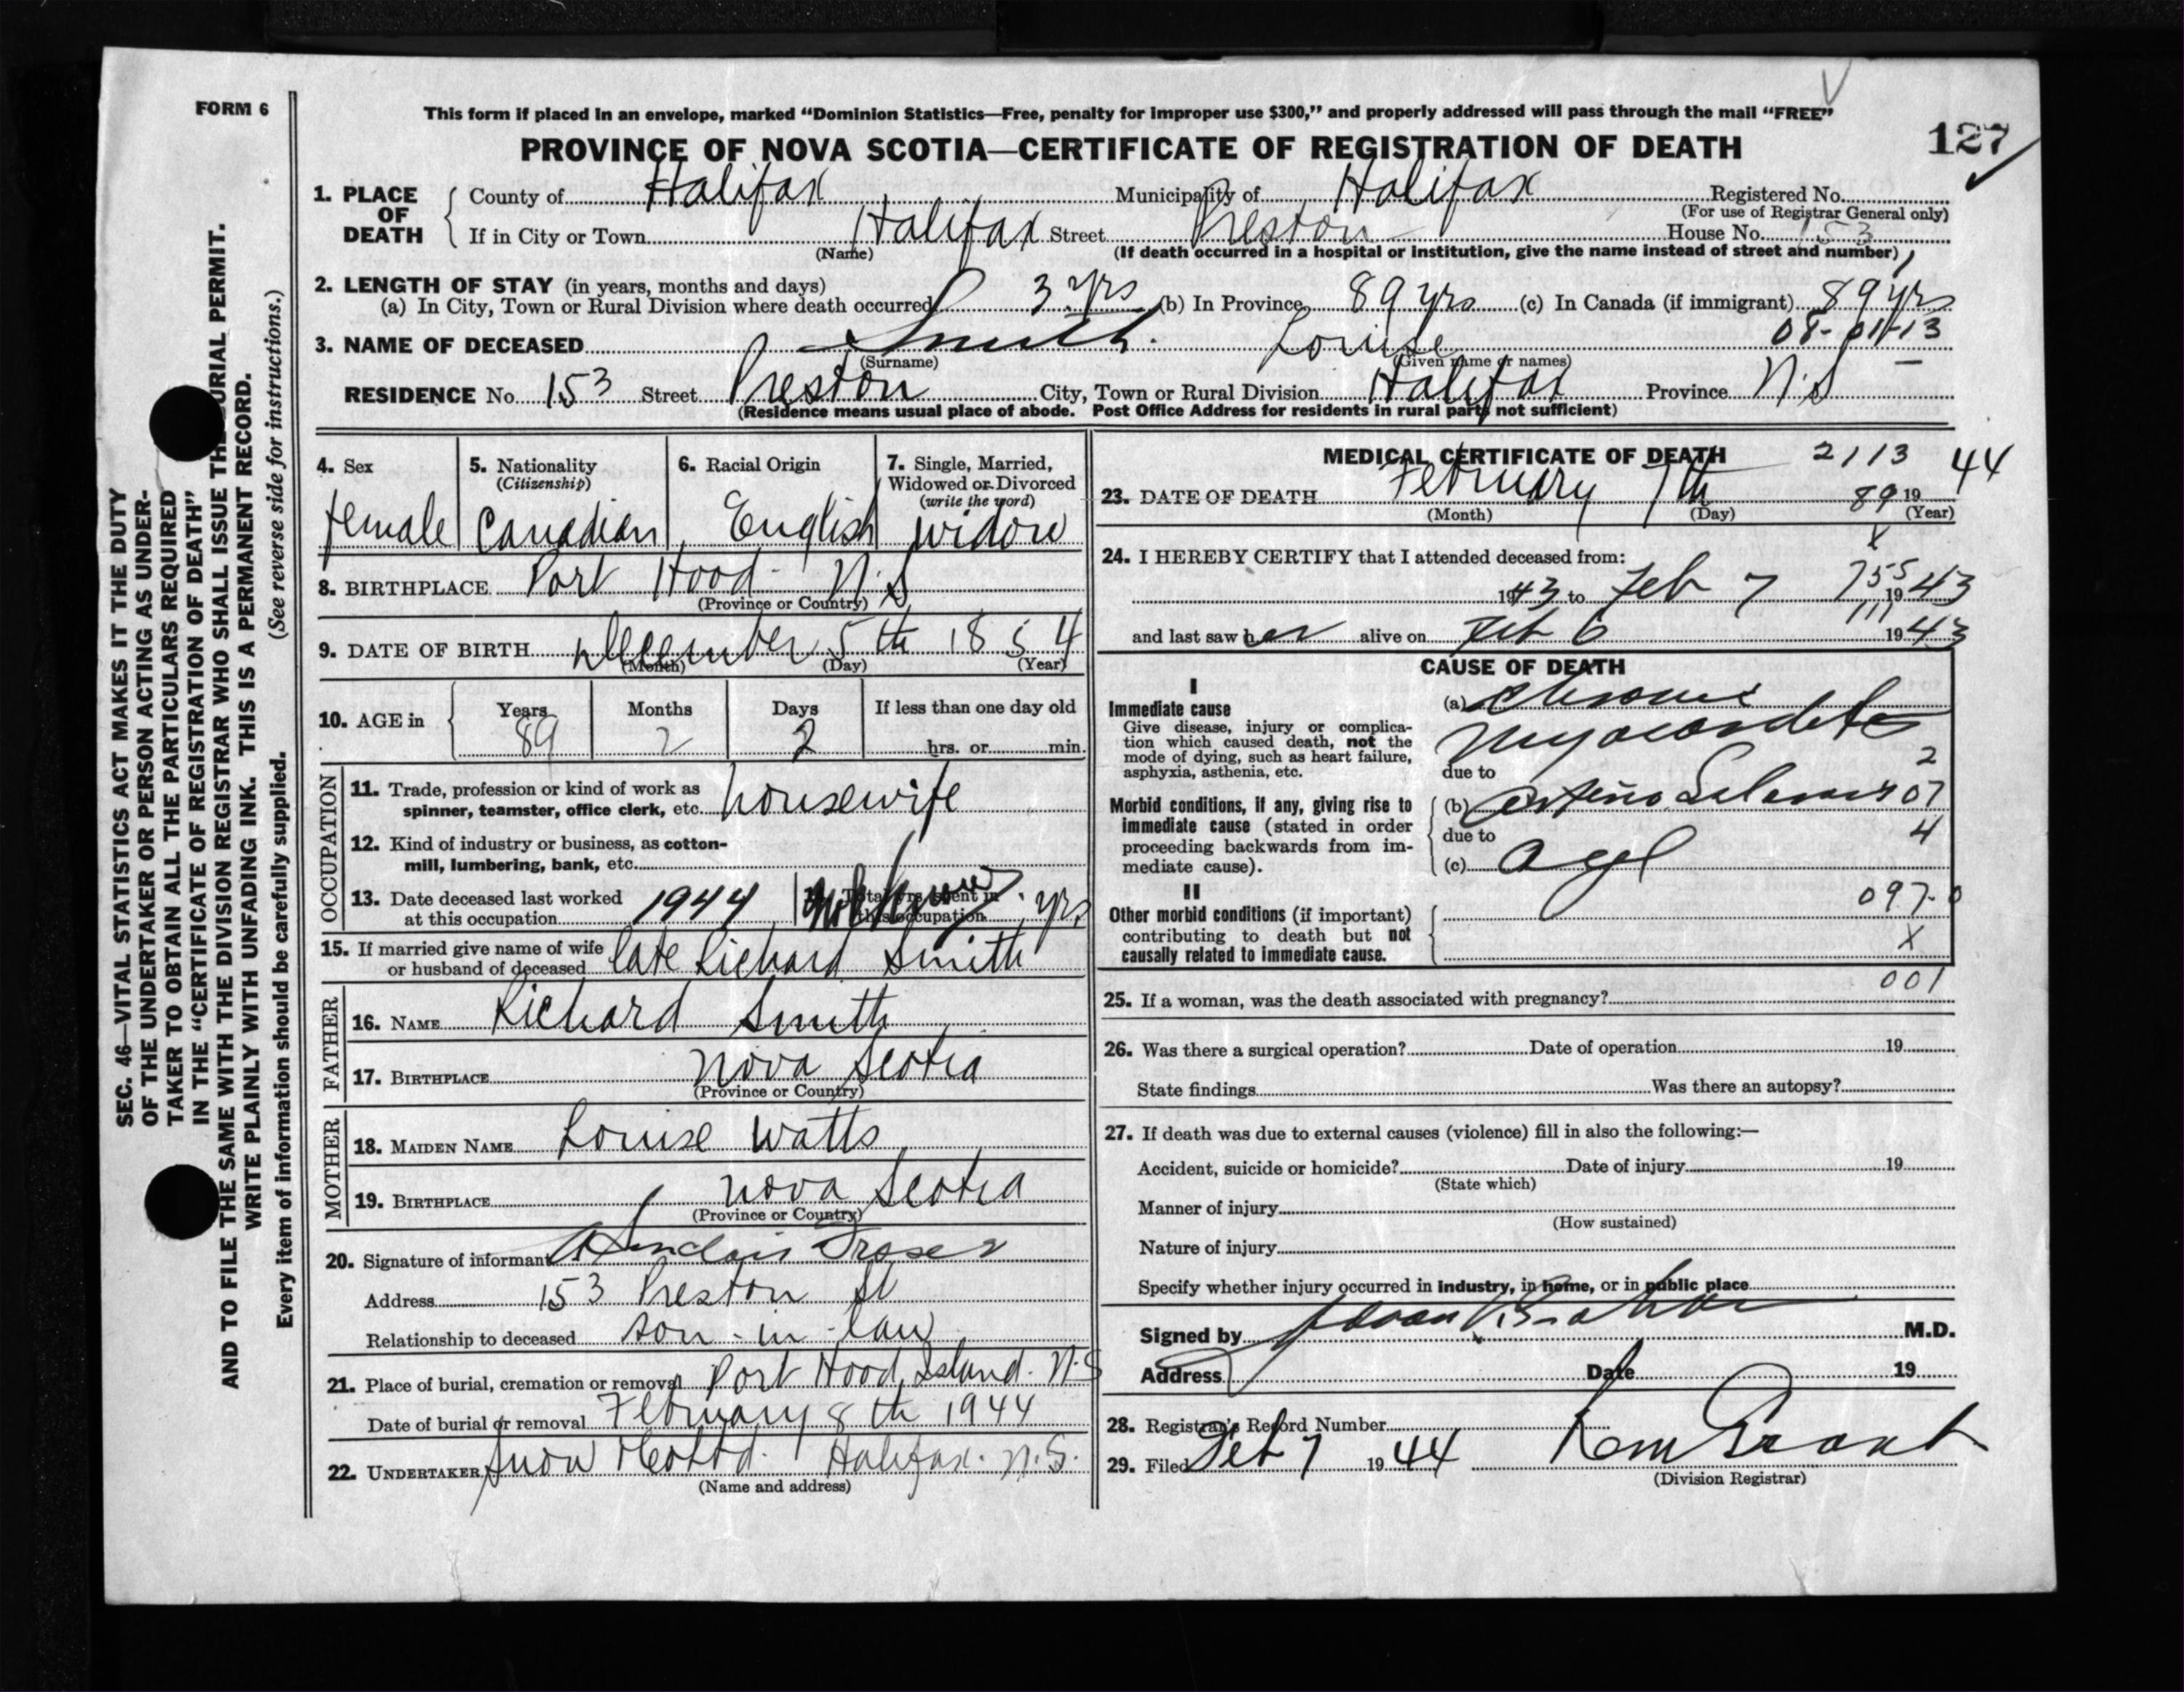 FORM 6
This form if placed in an envelope, marked “Dominion Statistics—Free, penalty for improper use $300,” and properly addressed will pass through the mail “FREE”
PROVINCE OF NOVA SCOTIA—CERTIFICATE OF REGISTRATION OF DEATH
127
1. PLACE OF DEATH
County of Halifax Municipality of Halifax Registered No.
(For use of Registrar General only)
If in City or Town Halifax Street Preston House No. 153
(Name) (If death occurred in a hospital or institution, give the name instead of street and number)
2. LENGTH OF STAY (in years, months and days)
(a) In City, Town or Rural Division where death occurred 3 yrs (b) In Province 89 yrs (c) In Canada (if immigrant) 89 yrs
08-01-13
3. NAME OF DECEASED Smith. Louise
(Surname) (Given name or names)
RESIDENCE No. 153 Street Preston City, Town or Rural Division Halifax Province N.S
(Residence means usual place of abode. Post Office Address for residents in rural parts not sufficient)
4. Sex
female
5. Nationality
(Citizenship)
Canadian
6. Racial Origin
English
7. Single, Married,
Widowed or Divorced
(write the word)
widow
8. BIRTHPLACE Port Hood N.S
(Province or Country)
9. DATE OF BIRTH December 5th 1854
(Month) (Day) (Year)
10. AGE in
Years Months Days If less than one day old
89 2 2 hrs. or min.
OCCUPATION
11. Trade, profession or kind of work as
spinner, teamster, office clerk, etc. housewife
12. Kind of industry or business, as cotton-
mill, lumbering, bank, etc.
13. Date deceased last worked
at this occupation 1944
Total yrs. spent in
this occupation yrs
15. If married give name of wife
or husband of deceased late Richard Smith
FATHER
16. NAME Richard Smith
17. BIRTHPLACE Nova Scotia
(Province or Country)
MOTHER
18. MAIDEN NAME Louise Watts
19. BIRTHPLACE Nova Scotia
(Province or Country)
20. Signature of informant A Sinclair Fraser
Address 153 Preston St
Relationship to deceased son-in-law
21. Place of burial, cremation or removal Port Hood Island. N.S
Date of burial or removal February 8th 1944
22. UNDERTAKER Snow & Co Ltd. Halifax. N.S.
(Name and address)
MEDICAL CERTIFICATE OF DEATH
2113
23. DATE OF DEATH February 7th 19 44
89
(Month) (Day) (Year)
X
24. I HEREBY CERTIFY that I attended deceased from:
1943 to Feb 7 1943
755
111
and last saw her alive on Feb 6 1943
CAUSE OF DEATH
I
Immediate cause
Give disease, injury or complica-
tion which caused death, not the
mode of dying, such as heart failure,
asphyxia, asthenia, etc.
(a) Chronic
Myocarditis
due to
2
Morbid conditions, if any, giving rise to
immediate cause (stated in order
proceeding backwards from im-
mediate cause).
(b) Arterio Sclerosis 07
due to
4
(c) age
II
Other morbid conditions (if important)
contributing to death but not
causally related to immediate cause.
097-0
X
001
25. If a woman, was the death associated with pregnancy?
26. Was there a surgical operation? Date of operation 19
State findings Was there an autopsy?
27. If death was due to external causes (violence) fill in also the following:—
Accident, suicide or homicide? Date of injury 19
(State which)
Manner of injury
(How sustained)
Nature of injury
Specify whether injury occurred in industry, in home, or in public place
Signed by M.D.
Address Date 19
28. Registrar's Record Number
29. Filed Feb 7 1944
(Division Registrar)
SEC. 46—VITAL STATISTICS ACT MAKES IT THE DUTY
OF THE UNDERTAKER OR PERSON ACTING AS UNDER-
TAKER TO OBTAIN ALL THE PARTICULARS REQUIRED
IN THE “CERTIFICATE OF REGISTRATION OF DEATH”
AND TO FILE THE SAME WITH THE DIVISION REGISTRAR WHO SHALL ISSUE BURIAL PERMIT.
WRITE PLAINLY WITH UNFADING INK. THIS IS A PERMANENT RECORD.
Every item of information should be carefully supplied. (See reverse side for instructions.)